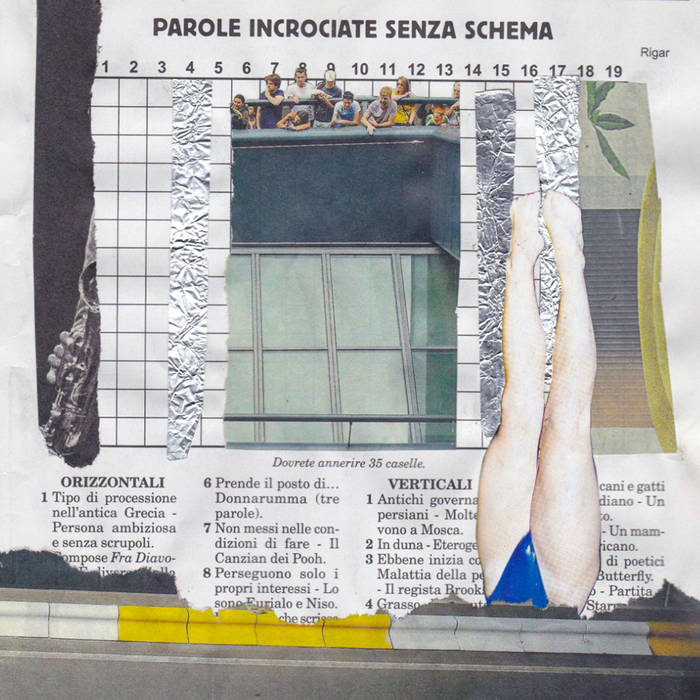 PAROLE INCROCIATE SENZA SCHEMA
Rigar
1 2 3 4 5 6 7 8 9 10 11 12 13 14 15 16 17 18 19
Dovrete annerire 35 caselle.
ORIZZONTALI
1 Tipo di processione
nell'antica Grecia -
Persona ambiziosa
e senza scrupoli.
Compose Fra Diavo-
6 Prende il posto di...
Donnarumma (tre
parole).
7 Non messi nelle con-
dizioni di fare - Il
Canzian dei Pooh.
8 Perseguono solo i
propri interessi - Lo
sono Eurialo e Niso.
che scrisse
VERTICALI
1 Antichi governa
persiani - Molte
vono a Mosca.
2 In duna - Eteroge
3 Ebbene inizia co
Malattia della pe
- Il regista Brook
4 Grasso
cani e gatti
diano - Un
to.
- Un mam-
ricano.
di poetici
Butterfly.
- Partita